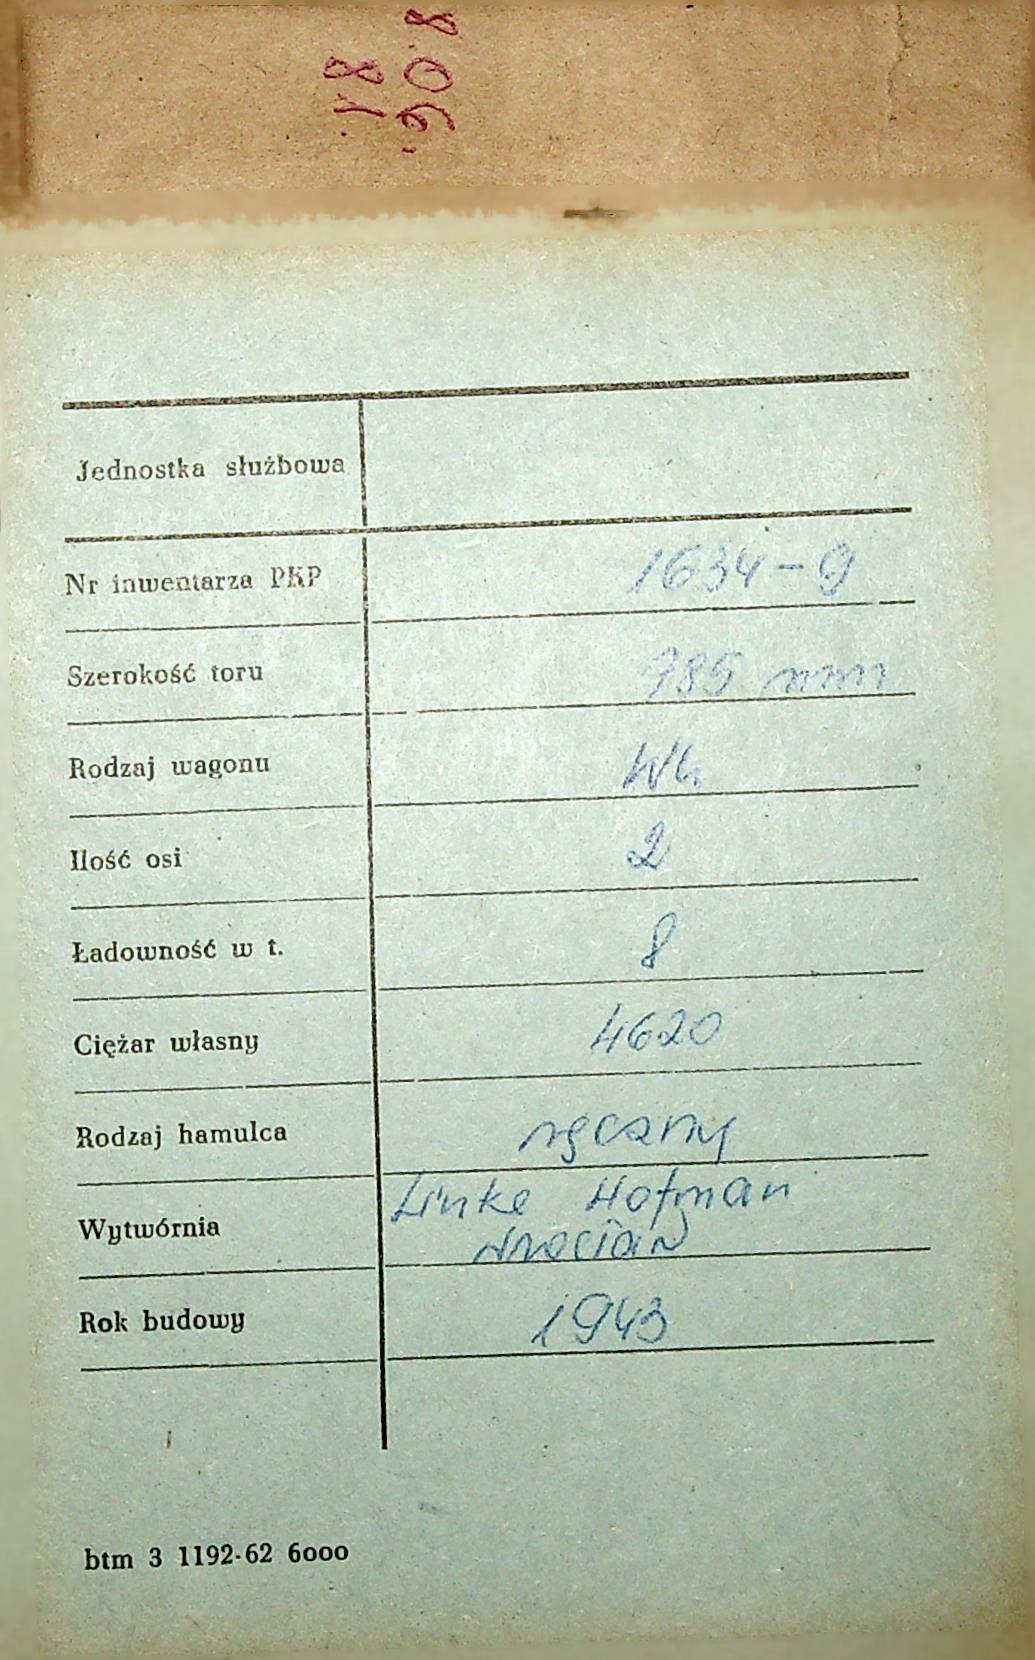 Jednostka służbowa
Nr inwentarza PKP 1634-9
Szerokość toru 785 mm
Rodzaj wagonu
Ilość osi 2
Ładowność w t. 8
Ciężar własny 4620
Rodzaj hamulca ręczny
Wytwórnia Linke Hofman
Wrocław
Rok budowy 1943
btm 3 1192-62 6000